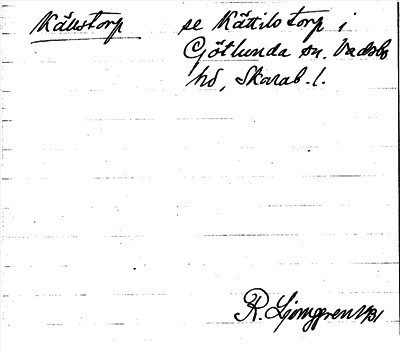 Källstorp se Kättilstorp i
Götlunda sn. Vadsbo
hd, Skarab. l.
R. Ljunggren 1931